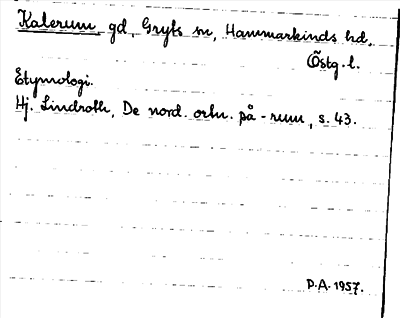 Kalerum gd, Gryts sn, Hammarkinds hd,
Östg. l.
Etymologi.
Hj. Lindroth, De nord. ortn. på -rum, s. 43.
P.A. 1957.